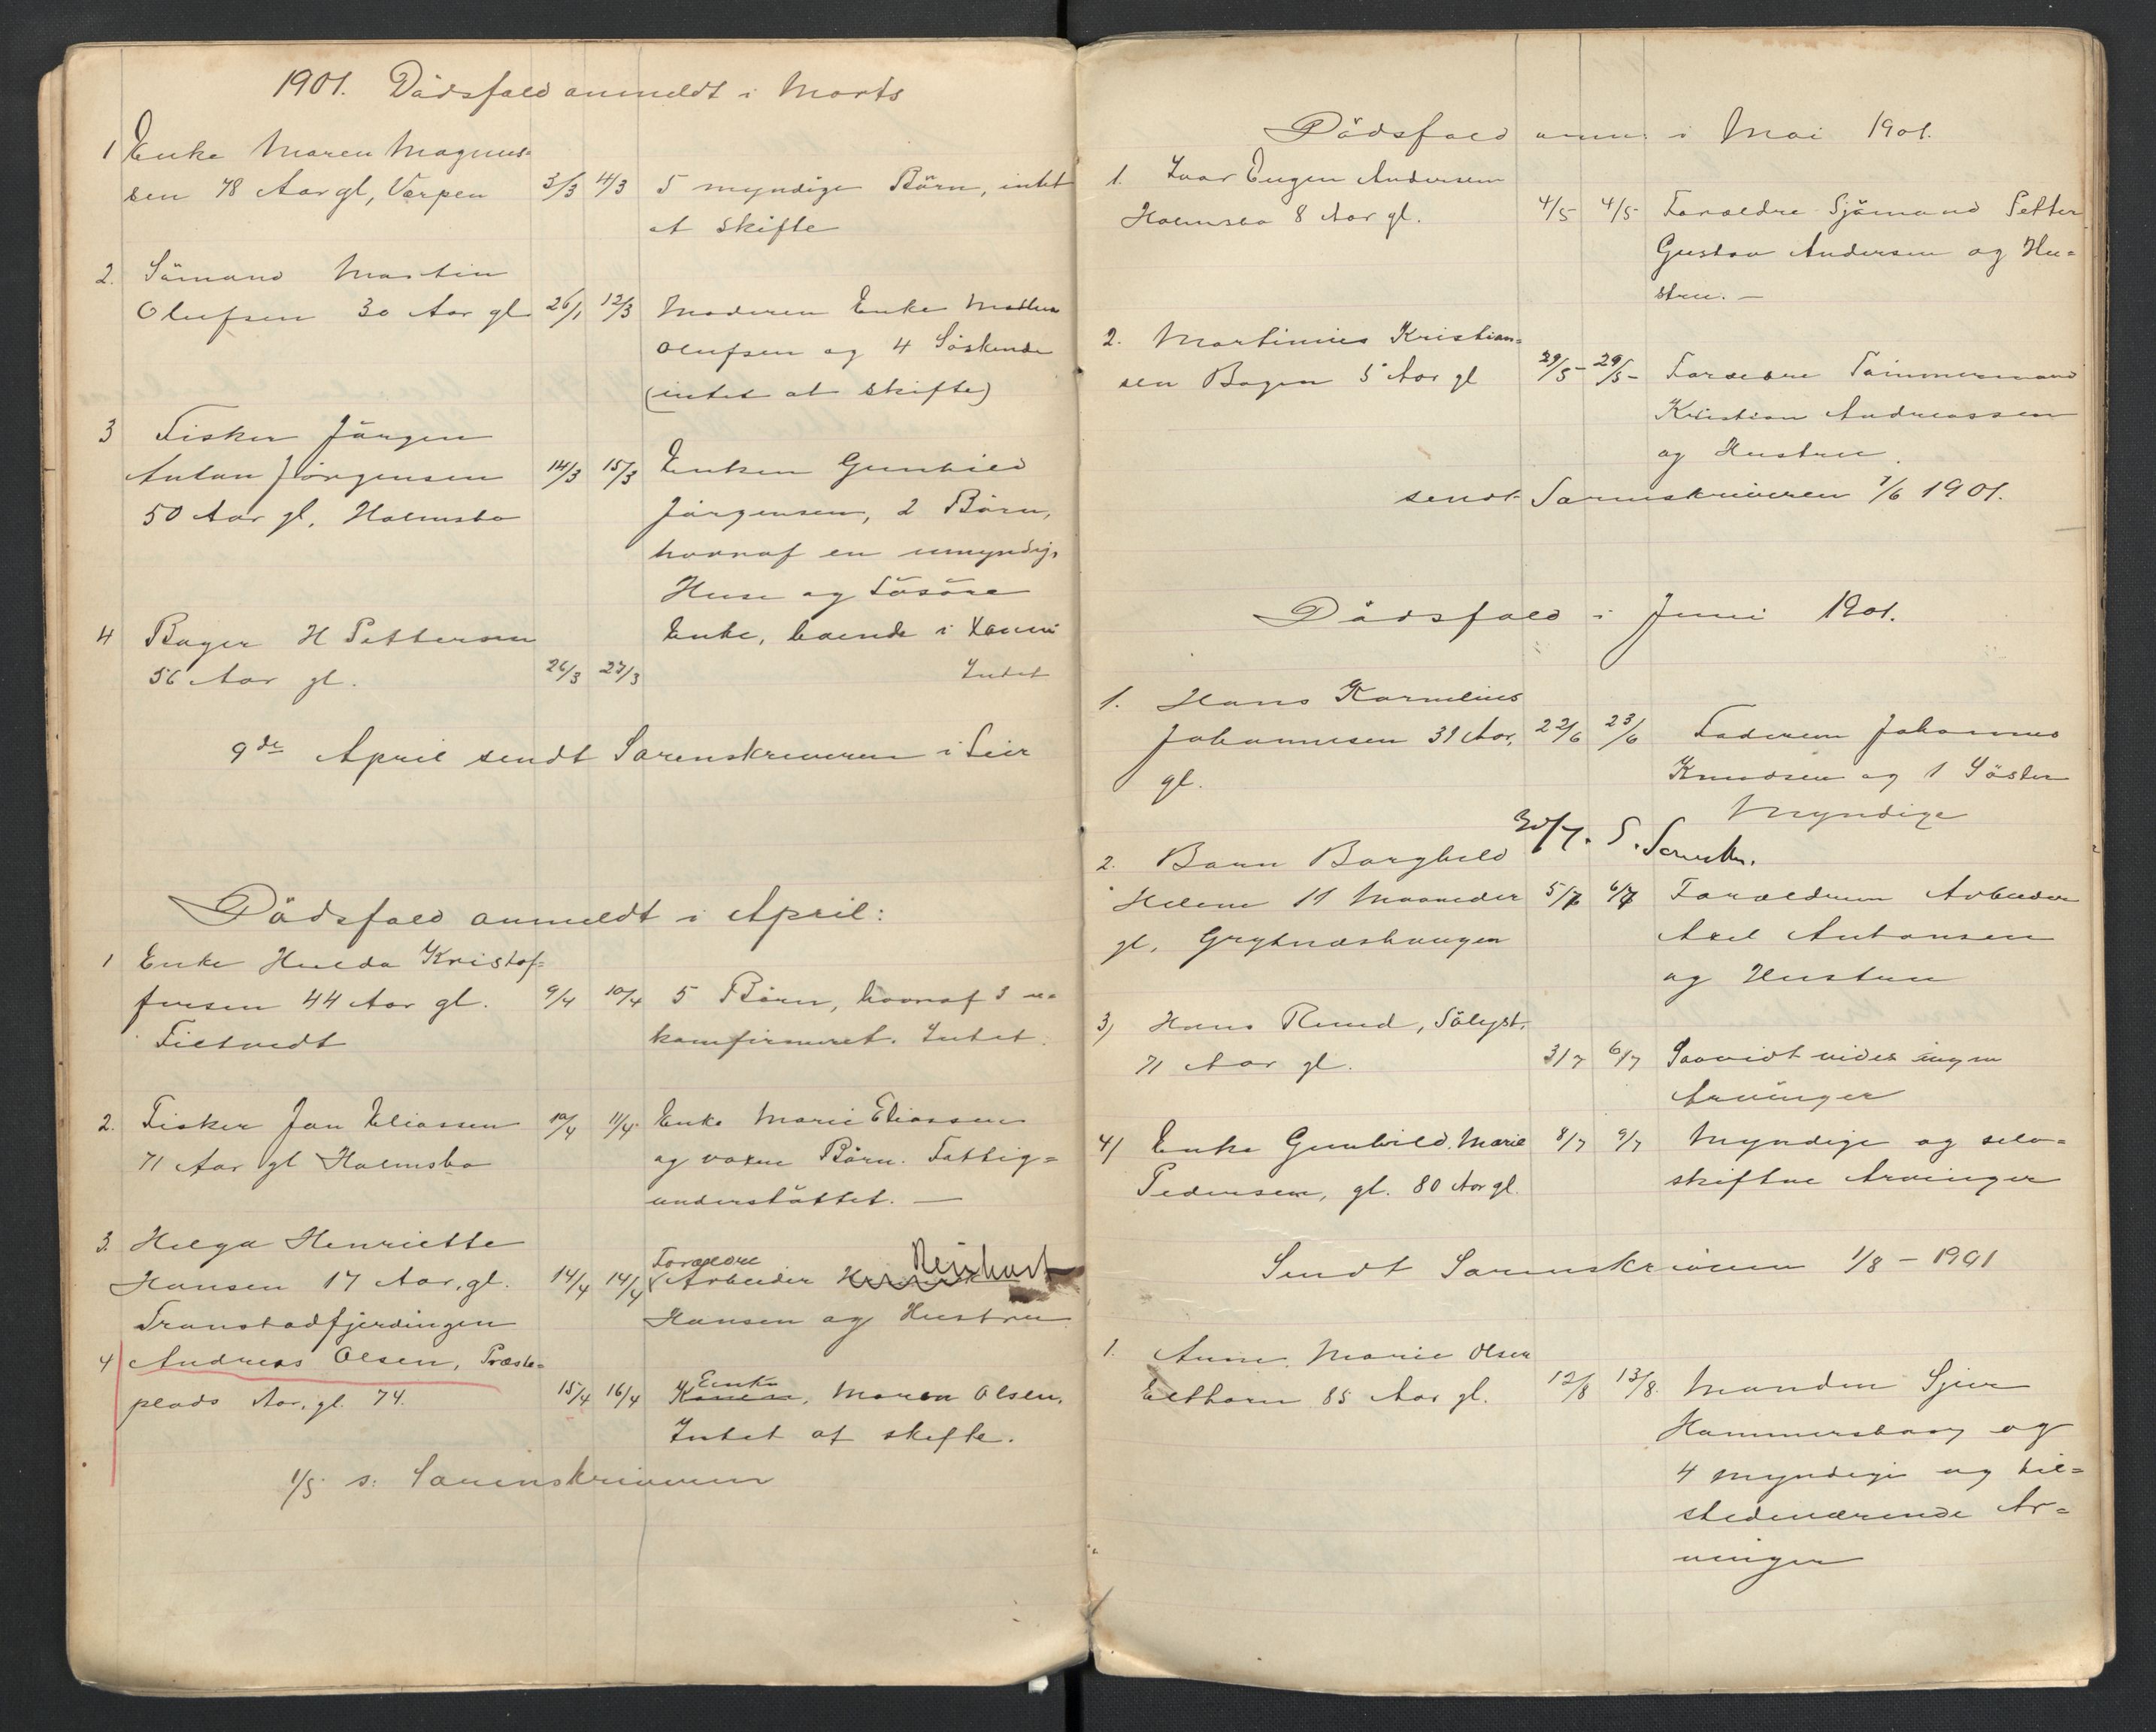 1901. Dödsfald anmeldt i Marts
1 Enke Maren Magnus-
sen 78 Aar gl, Værpen 3/3 4/3 5 myndige Börn, intet
at skifte
2. Sömand Martin
Olufsen 30 Aar gl 26/1 12/3 Moderen Enke
Olufsen og 4 Söskende
(intet at skifte)
3 Fisker Jörgen
Anton Jörgensen 14/3 15/3 Enken Gunhild
50 Aar gl, Holmsbo Jörgensen, 2 Börn,
hvoraf en umyndig,
Huse og Lösöre
4 Bager H Pettersen Enke, boende i
56 Aar gl. 26/3 27/3 Intet
9de April sendt Sorenskriveren i Lier
Dödsfald anmeldt i April:
1 Enke Hulda Kristof-
fersen 44 Aar gl. 9/4 10/4 5 Börn, hvoraf 3 u-
Filtvedt konfirmeret. Intet.
2. Fisker Jan Eliassen 10/4 11/4 Enke Marie Eliassen
71 Aar gl Holmsbo og voxne Börn. Fattig-
understöttet. —
3. Helga Henriette Forældre Reinhart
Hansen 17 Aar, gl. 14/4 14/4 Arbeider
Tronstadfjerdingen Hansen og Hustru
4 Andreas Olsen, Præste- Enke
plads Aar, gl. 74. 15/4 16/4 Konen, Maren Olsen,
Intet at skifte.
1/5 s. Sorenskriveren
Dödsfald anm. i Mai 1901.
1. Ivar Eugen Andersen
Holmsbo 8 Aar gl. 4/5 4/5 Forældre Sjömand Petter
Gustav Andersen og Hu-
stru. —
2. Martinius Kristian-
sen Bogen 5 Aar gl 29/5 29/5 Forældre Tömmermand
Kristian Andreassen
og Hustru.
sendt Sorenskriveren 1/6 1901.
Dödsfald i Juni 1901.
1. Hans Kornelius
Johannesen 31 Aar, 22/6 23/6 Faderen Johannes
gl. Knudsen og 1 Söster
Myndige
30/7. S. Sorenskr.
2. Barn Borghild
Helene 11 Maaneder 5/7 6/7 Forældrene Arbeider
gl, Grytnæshaugen Axel Antonsen
og Hustru
3) Hans Ruud, Sölyst.
71 Aar gl. 3/7 6/7 Saavidt vides ingen
Arvinger
4) Enke Gunhild Marie 8/7 9/7 Myndige og selv-
Pedersen, gl. 80 Aar gl. skiftne Arvinger
Sendt Sorenskriveren 1/8 – 1901
1. Anne Marie Olsen
Elthorn 85 Aar gl. 12/8 13/8. Manden
Hammersborg og
4 myndige og til-
stedeværende Ar-
vinger